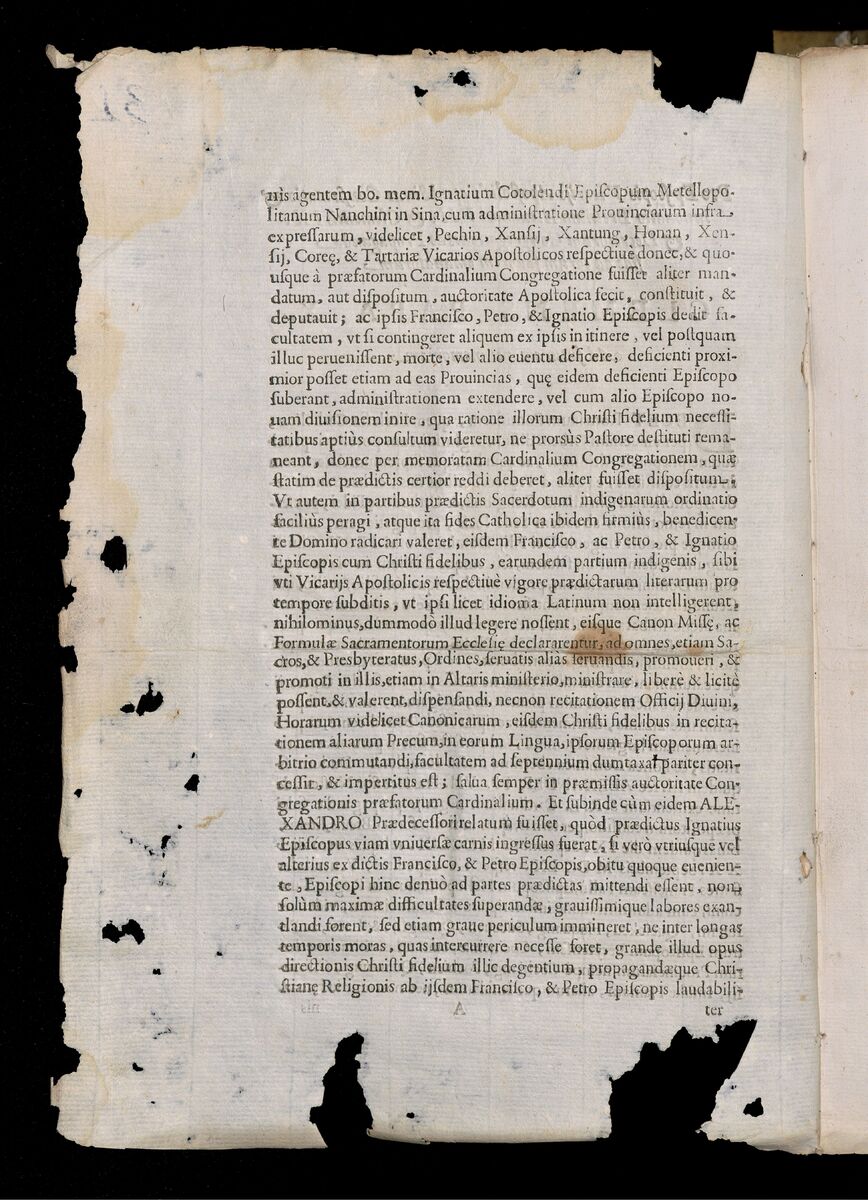 nis agentem bo. mem. Ignatium Cotolendi Epiſcopum Metellopo-
litanum Nanchini in Sina, cum adminiſtratione Prouinciarum infra
expreſſarum, videlicet, Pechin, Xanſij, Xantung, Honan, Xen-
ſij, Coreę, & Tartariæ Vicarios Apoſtolicos reſpectiuè donec, & quo-
uſque à præfatorum Cardinalium Congregatione fuiſſet aliter man-
datum, aut diſpoſitum, auctoritate Apoſtolica fecit, conſtituit, &
deputauit; ac ipſis Franciſco, Petro, & Ignatio Epiſcopis dedit fa-
cultatem, vt ſi contingeret aliquem ex ipſis in itinere, vel poſtquam
illuc perueniſſent, morte, vel alio euentu deficere, deficienti proxi-
mior poſſet etiam ad eas Prouincias, quę eidem deficienti Epiſcopo
ſuberant, adminiſtrationem extendere, vel cum alio Epiſcopo no-
uam diuiſionem inire, qua ratione illorum Chriſti fidelium neceſſi-
tatibus aptiùs conſultum videretur, ne prorsùs Paſtore deſtituti rema-
neant, donec per memoratam Cardinalium Congregationem, quæ
ſtatim de prædictis certior reddi deberet, aliter fuiſſet diſpoſitum.
Vt autem in partibus prædictis Sacerdotum indigenarum ordinatio
faciliùs peragi, atque ita fides Catholica ibidem firmiùs, benedicen-
te Domino radicari valeret, eiſdem Franciſco, ac Petro, & Ignatio
Epiſcopis cum Chriſti fidelibus, earundem partium indigenis, ſibi
vti Vicarijs Apoſtolicis reſpectiuè vigore prædictarum literarum pro
tempore ſubditis, vt ipſi licet idioma Latinum non intelligerent,
nihilominus, dummodò illud legere noſſent, eiſque Canon Miſſę, ac
Formulæ Sacramentorum Eccleſię declararentur, ad omnes, etiam Sa-
cros, & Presbyteratus, Ordines, ſeruatis aliàs ſeruandis, promoueri, &
promoti in illis, etiam in Altaris miniſterio, miniſtrare, liberè & licitè
poſſent, & valerent, diſpenſandi, necnon recitationem Officij Diuini,
Horarum videlicet Canonicarum, eiſdem Chriſti fidelibus in recita-
tionem aliarum Precum, in eorum Lingua, ipſorum Epiſcoporum ar-
bitrio commutandi, facultatem ad ſeptennium dumtaxat pariter con-
ceſſit, & impertitus eſt; ſalua ſemper in præmiſſis auctoritate Con-
gregationis præfatorum Cardinalium. Et ſubinde cùm eidem ALE-
XANDRO Prædeceſſori relatum fuiſſet, quòd prædictus Ignatius
Epiſcopus viam vniuerſæ carnis ingreſſus fuerat, ſi verò vtriuſque vel
alterius ex dictis Franciſco, & Petro Epiſcopis, obitu quoque euenien-
te, Epiſcopi hinc denuò ad partes prædictas mittendi eſſent, non
ſolùm maximæ difficultates ſuperandæ, grauiſſimique labores exan-
tlandi forent, ſed etiam graue periculum immineret, ne inter longas
temporis moras, quas intercurrere neceſſe foret, grande illud opus
directionis Chriſti fidelium illic degentium, propagandæque Chri-
ſtianę Religionis ab ijſdem Franciſco, & Petro Epiſcopis laudabili-
ter